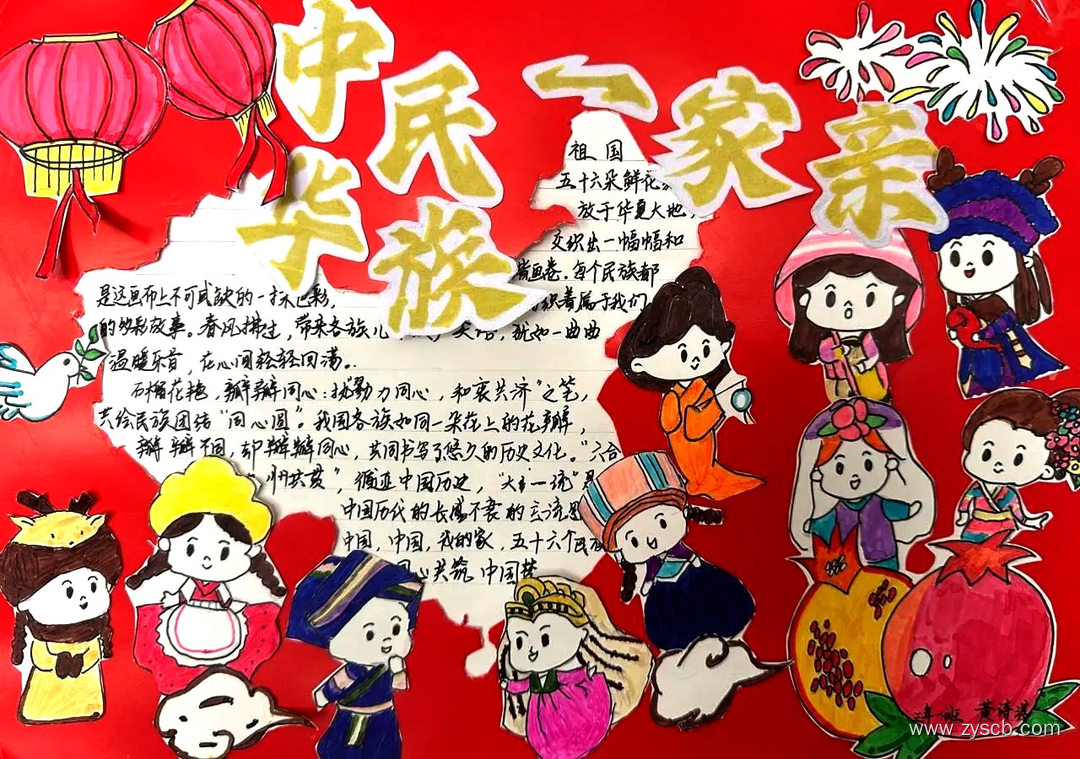 中华民族一家亲
祖国
五十六朵鲜花
放于华夏大地,
交织出一幅幅和
画卷。每个民族都
是这画布上不可或缺的一抹色彩,
织着属于我们
的故事。春风拂过,带来各族儿
犹如一曲曲
温暖乐音,在心间轻轻回荡。
石榴花艳,瓣瓣同心:拟勠力同心,和衷共济"之笔,
共绘民族团结"同心圆"。我国各族如同一朵花上的花瓣,
瓣瓣不同,却瓣瓣同心,共同书写了悠久的历史文化。"六合
共贯",循迹中国历史,"大一统"
中国历代的长盛不衰的主流思
中国,中国,我的家,五十六个民族
同心共筑中国梦
班 黄诗
www.zyscb.com